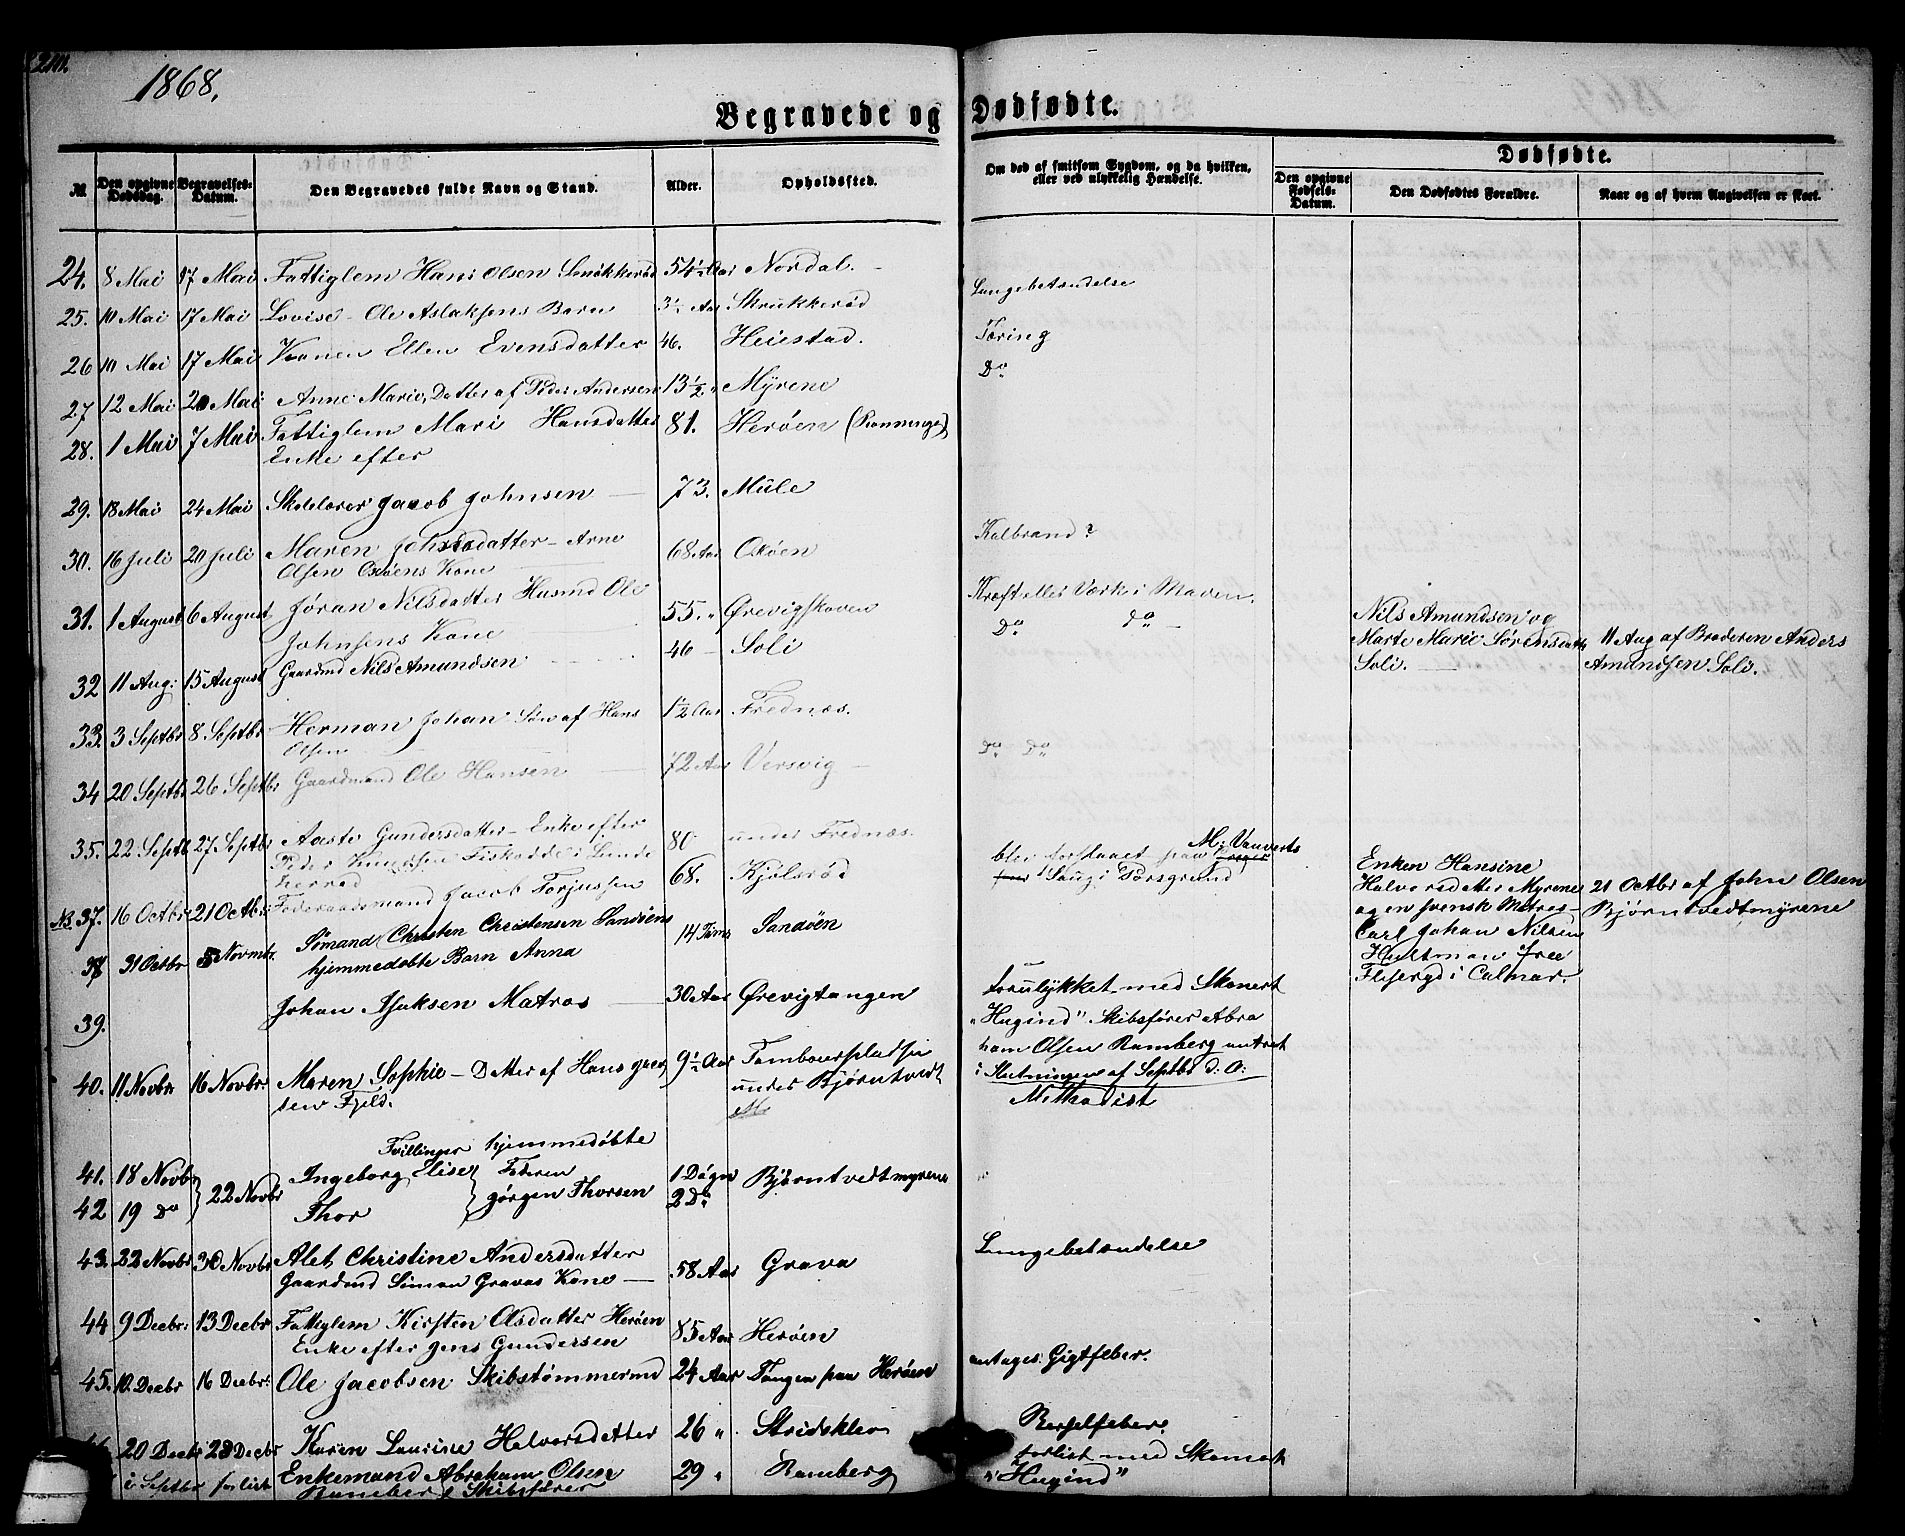 1868.
Begravede og Dødfødte.
№
Den opgivne Dødsdag.
Begravelses-Datum.
Den Begravedes fulde Navn og Stand.
Alder.
Opholdssted.
Om død af smitsom Sygdom, og da hvilken, eller ved ulykkelig Hændelse.
Dødfødte.
Den opgivne Fødsels-Datum.
Den Dødfødtes Forældre.
Naar og af hvem Angivelsen er skeet.
24. 8 Mai 17 Mai Fattiglem Hans Olsen 54½ Aar Nordal.
Lungebetændelse
25. 10 Mai 17 Mai Lovise - Ole Aslaksens Barn 3½ Aar Skrukkerød
26 10 Mai 17 Mai Konen Ellen Evensdatter 46. Heistad.
Tæring
Do
27 12 Mai 20 Mai Anne Marie, Datter af Peder Andersen 13½ " Myrene
28. 1 Mai 7 Mai Fattiglem Mari Hansdatter 81. Herøen
Enke efter
29. 18 Mai 24 Mai Skolelærer Jacob Johnsen 73. Mule
30. 16 Juli 20 Juli Maren Johnsdatter - Arne 68 Aar Oxøen
Olsen Oxøens Kone
Kolbrand?
31. 1 August 6 August Jøran Nilsdatter Husmd Ole 55. " Ørevigskoven
Johnsens Kone
Kræft eller Værk i Maven.
Do do
32 11 Aug: 15 August Gaardmd Nils Amundsen 46 Soli
Nils Amundsen og
Marte Marie Sørensdatter
Soli.
11 Aug af Broderen Anders
Amundsen Soli.
33. 3 Septbr 8 Septbr Herman Johan Søn af Hans 1½ Aar Frednæs.
Olsen
Do Do
34 20 Septbr 26 Septbr Gaardmand Ole Hansen 72 Aar Versvig
35. 22 Septb 27 Septbr Aaste Gundersdatter - Enke efter 80 under Frednæs.
Peder Knudsen i Lunde
herred
37. 16 Octbr 21 Octbr Føderaadsmand Jacob Torjussen 68. Kjølsrød
Saug i Porsgrund
Enken Hansine
Halvorsdatter Myrene
og en svensk Matros
Carl Johan Nilsen
Hultman fra
i Calmar.
21 Octbr af John Olsen
Bjørntvedtmyrene
38 31 Octbr 8 Novmbr. Sømand Christen Christensen Sandøens 14 Timer Sandøen
hjemmedøbte Barn Anna
39. Johan Isaksen Matros 30 Aar Ørevigtangen
forulykket med Skonert
"Hugind" Skibsfører Abra
ham Olsen Ramberg antat
i Slutningen af Septbr d: A:
40. 11 Novbr 16 Novbr Maren Sophie - Datter af Hans Gres 9½ Aar Tambourpladsen
sen Fjeld. under Bjørntvedt
Methodist
Tvillinger hjemmedøbte
41. 18 Novb 22 Novbr Ingeborg Elise Faderen 1 Døgn Bjørntvedtmyrene
42 19 Do Thor Jørgen Thorsen 2 Do
43. 22 Novbr 30 Novbr Alet Christine Andersdatter 58 Aar Grava
Gaardmd Simon Gravas Kone
Lungebetændelse
44 9 Decbr: 13 Decbr Fattiglem Kirsten Olsdatter Herøen 85 Aar Herøen
Enke efter Jens Gundersen
45. 10 Decbr 16 Decbr: Ole Jacobsen Skibstømmermd 24 Aar Tangen paa Herøen
antages: Gigtfeber.
46 20 Decbr 28 Decbr Karen Laurine Halvorsdatter 26 " Stridsklev
Barselfeber.
i Septbr forlist Enkemand Abraham Olsen 29 " Ramberg
Ramberg Skibsfører
forlist med Skonert
"Hugind"